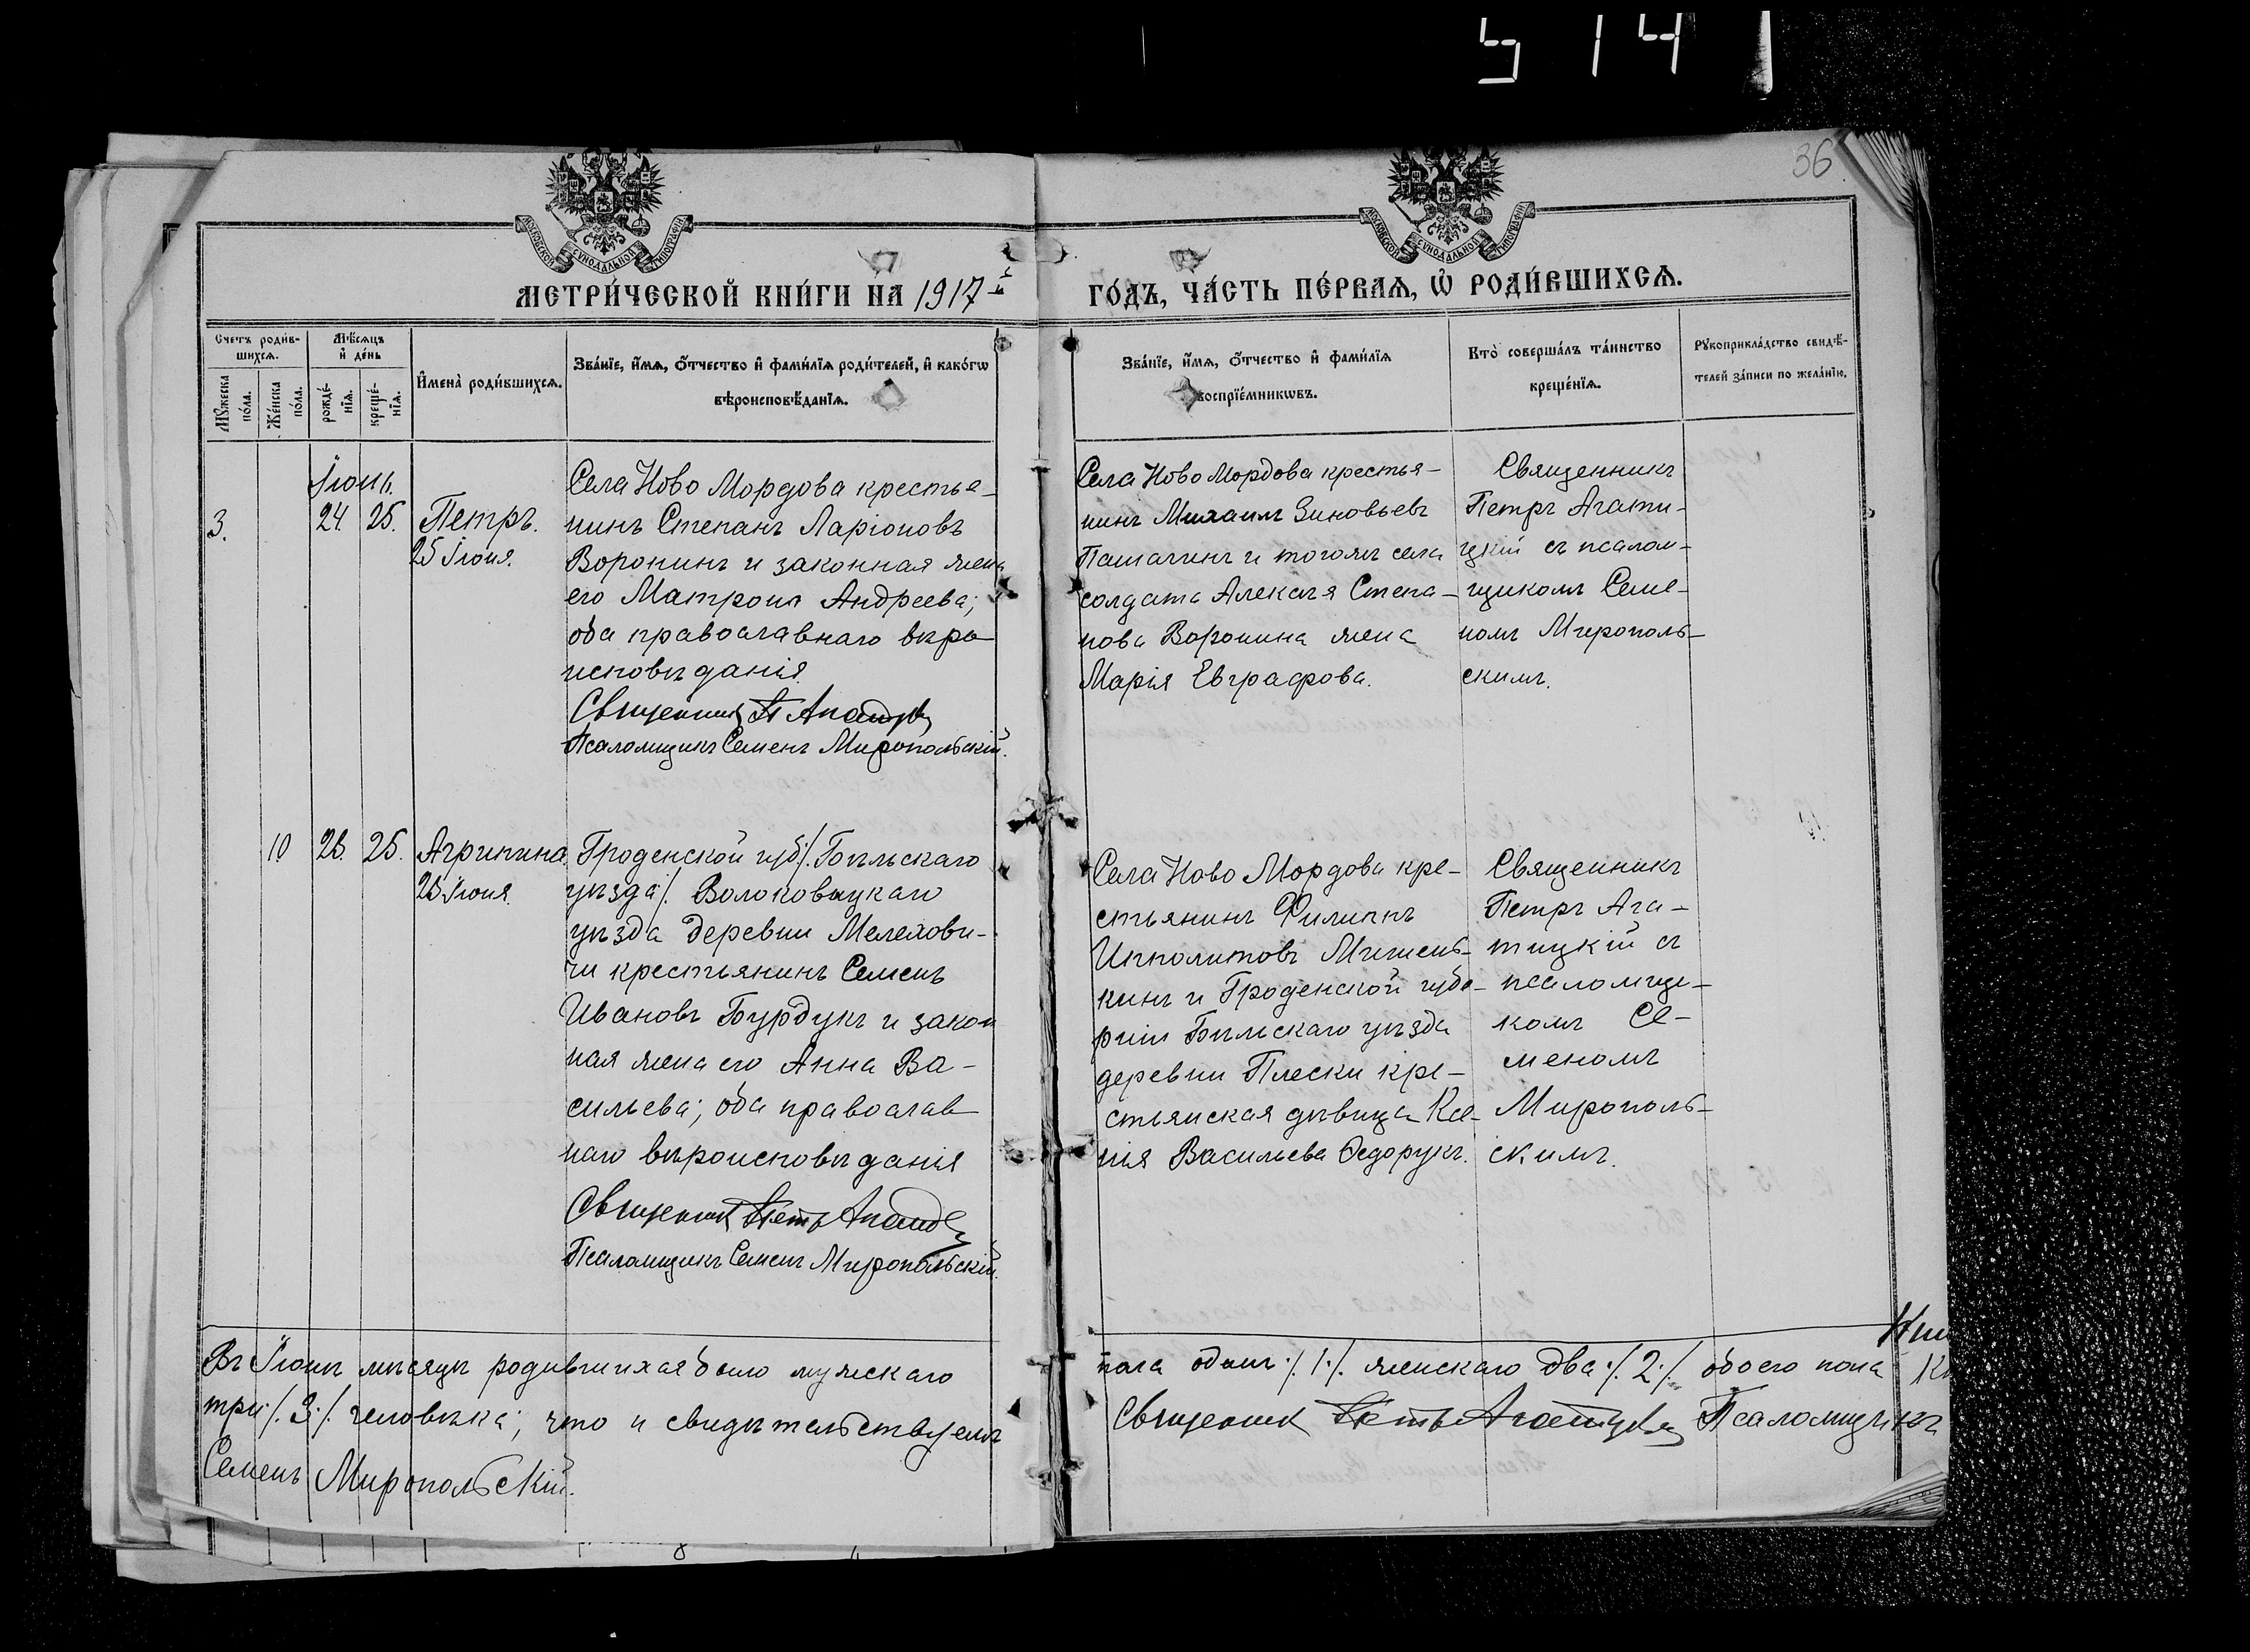 5141
36
МОСКОВСКОЙ СѴНОДАЛЬНОЙ ТИПОГРАФІИ
МОСКОВСКОЙ СѴНОДАЛЬНОЙ ТИПОГРАФІИ
МЕТРИ́ЧЕСКОЙ КНИ́ГИ НА 1917й
ГО́ДЪ, ЧА́СТЬ ПЕ́РВАѦ, Ѡ҆ РОДИ́ВШИХСѦ.
Счетъ роди́в-
шихсѧ.
Мѣ́сѧцъ
и҆ де́нь
Мꙋ́жеска
по́ла.
Же́нска
по́ла.
рожде́-
нїѧ.
креще́-
нїѧ.
И҆мена̀ роди́вшихсѧ.
Зва́нїе, и҆́мѧ, ѻ҆́тчество и҆ фами́лїѧ роди́телей, и҆ како́гѡ
вѣроисповѣ́данїѧ.
Зва́нїе, и҆́мѧ, ѻ҆́тчество и҆ фами́лїѧ
воспрїе́мникѡвъ.
Кто̀ соверша́лъ та́инство
креще́нїѧ.
Рꙋкоприкла́дство свидѣ́-
телей за́писи по жела́нїю.
Іюнь.
3.
24. 25.
Петръ.
25 Іюня.
Села Ново Мордова крестья-
нинъ Степанъ Ларіоновъ
Воронинъ и законная жена
его Матрона Андреева;
оба православнаго вѣро
исповѣданія.
Священникъ П Агатицкій
Псаломщикъ Семенъ Миропольскій.
Села Ново Мордова крестья-
нинъ Михаилъ Зиновьевъ
Пашагинъ и тогожъ села
солдата Алексѣя Степа-
нова Воронина жена
Марія Евграфова.
Священникъ
Петръ Агати-
цкій съ псалом-
щикомъ Семе-
номъ Мирополь-
скимъ.
10
23. 25.
Агрипина
23 Іюня.
Гроденской губ./. Бѣльскаго
уѣзда/. Волоковыцкаго
уѣзда деревни Мелехови-
чи крестьянинъ Семенъ
Ивановъ Бурдукъ и закон
ная жена его Анна Ва-
сильева; оба православ
наго вѣроисповѣданія
Священникъ Петръ Агатицкій
Псаломщикъ Семенъ Миропольскій.
Села Ново Мордова кре-
стьянинъ Филиппъ
Ипполитовъ Мишень-
кинъ и Гроденской губе-
рніи Бѣльскаго уѣзда
деревни Плески кре-
стьянская дѣвица Ксе-
нія Васильева Ѳедорукъ.
Священникъ
Петръ Ага-
тицкій съ
псаломщи-
комъ Се-
меномъ
Мирополь-
скимъ.
Въ Іюнѣ мѣсяцѣ родившихся было мужскаго
пола одинъ ./. 1 ./. женскаго два ./. 2 ./. обоего пола
три ./. 3 ./. человѣка; что и свидѣтельствуемъ
Священникъ Петръ Агатицкій Псаломщикъ
Семенъ Миропольскій.